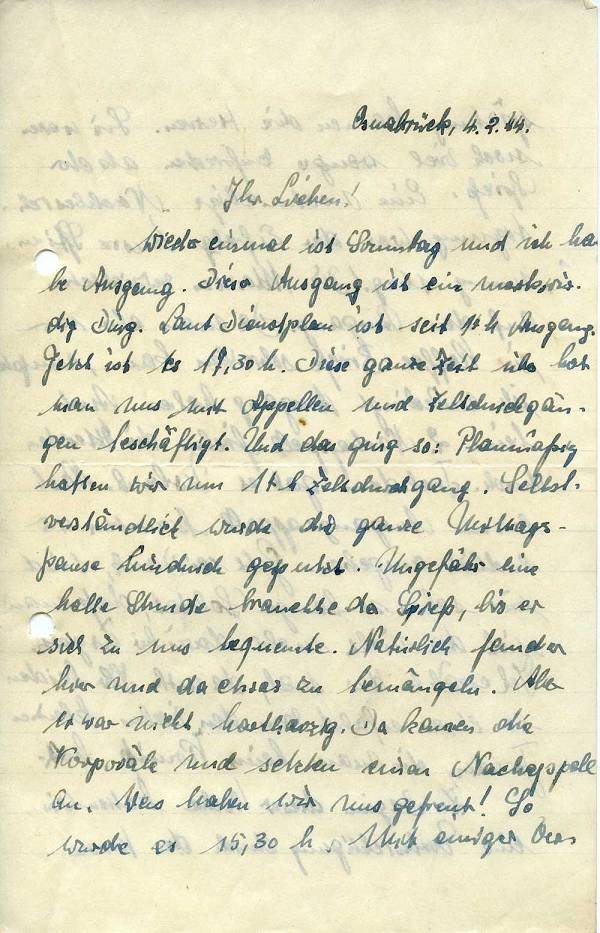 Osnabrück, 4.2.44.
Ihr Lieben!
Wieder einmal ist Sonntag und ich ha-
be Ausgang. Dieser Ausgang ist ein merkwür-
dig Ding. Laut Dienstplan ist seit 14 h Ausgang.
Jetzt ist es 17,30 h. Diese ganze Zeit über hat
man uns mit Appellen und Zeltdurchgän-
gen beschäftigt. Und das ging so: Planmäßig
hatten wir um 14 h Zeltdurchgang. Selbst-
verständlich wurde die ganze Mittags-
pause hindurch geputzt. Ungefähr eine
halbe Stunde brauchte der Spieß, bis er
sich zu uns bequemte. Natürlich fand er
hier und da etwas zu bemängeln. Aber
er war nicht hartherzig. Da kamen die
Korporäle und setzten einen Nachappell
an. Was haben wir uns gefreut! So
wurde es 15,30 h. Mit einiger Vers